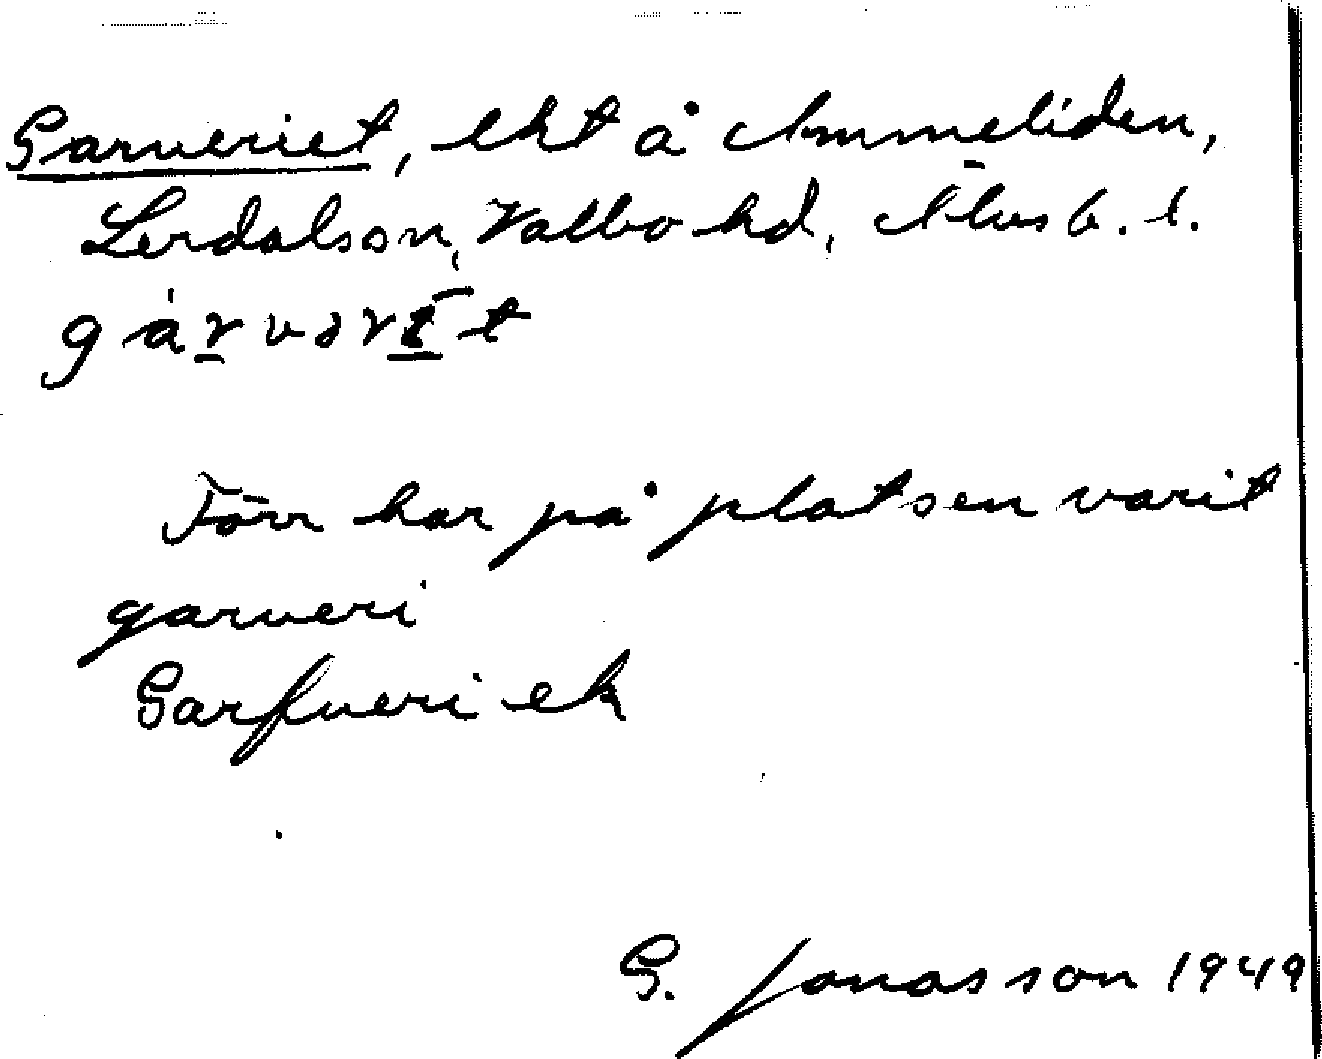 Garveriet, lht å Ammeliden,
Lerdalson, Valbo hd, Älvsb. l.
gàrvərīt
Förr har på platsen varit
garveri
Garfveri ek
G. Jonasson 1949